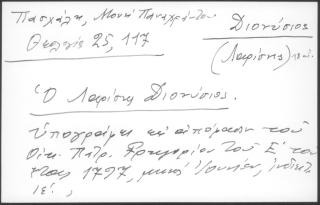 Πασχάλη, Μονή Παναχράντου
Θεολογία 25, 117
Διονύσιος
(Λαρίσης) 18 αι.
Ὁ Λαρίσης Διονύσιος.
ὑπογράφει εἰς ἀπόφασιν τοῦ
Οἰκ. Πατρ. Γρηγορίου τοῦ Ε' τοῦ
ἔτους 1797, μηνὸς Ἰουνίου, ἰνδικτ.
ιε'.